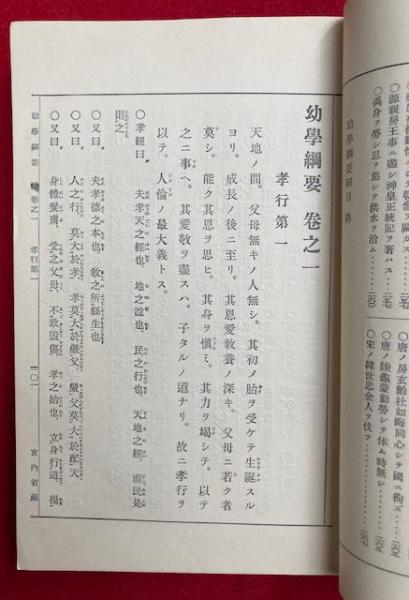 ○源親房王事ニ盡シ神皇正統記ヲ著ハス
○禹身ヲ勞シ思ヲ焦シテ洪水ヲ治ム
○唐ノ房玄齡杜如晦同心シテ國ニ徇ズ
○唐ノ陸贄蒙勤勞シテ休ム時無シ
○宋ノ韓世忠金人ヲ伐ツ
幼學綱要細目 終
幼學綱要 卷之一
孝行第一
天地ノ間。父母無キノ人無シ。其初メ胎ヲ受ケテ生誕スル
ヨリ。成長ノ後ニ至リ。其恩愛敎養ノ深キ。父母ニ若ク者
莫シ。能ク其恩ヲ思ヒ。其身ヲ愼ミ。其力ヲ竭シテ。以テ
之ニ事ヘ。其愛敬ヲ盡スハ。子タルノ道ナリ。故ニ孝行ヲ
以テ。人倫ノ最大義トス。
○孝經曰。夫孝天之經也。地之誼也。民之行也。天地之經。而民是
則之
○又曰。夫孝德之本也。敎之所繇生也
○又曰。人之行。莫大於孝。孝莫大於嚴父。嚴父莫大於配天
○又曰。身體髮膚。受之父母。不敢毀傷。孝之始也。立身行道。揚
幼學綱要 卷之一 孝行第一
一〇一
宮內省藏